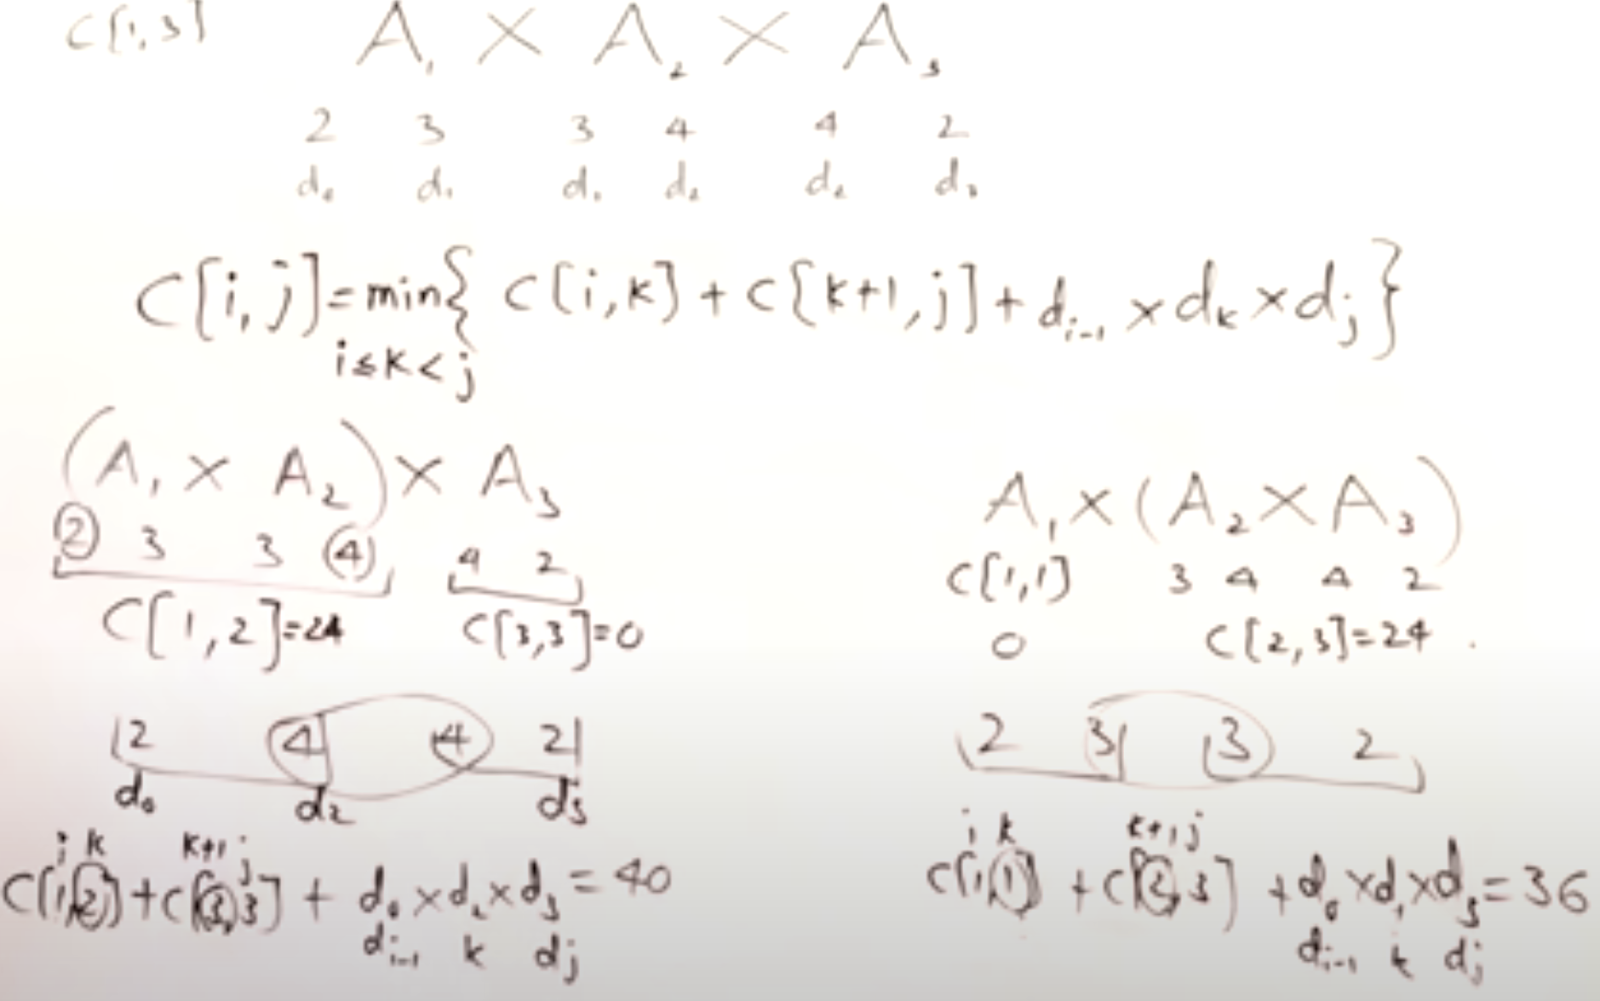 C[1,3] A₁ × A₂ × A₃
2 3 3 4 4 2
d₀ d₁ d₁ d₂ d₂ d₃
C[i,j]=min{ C[i,k] + C[k+1,j] + dᵢ₋₁ × dₖ × dⱼ }
i≤k<j
(A₁ × A₂) × A₃
2 3 3 4 4 2
C[1,2]=24 C[3,3]=0
2 4 4 2
d₀ d₂ d₃
i k k+1 j
C[1,2] + C[3,3] + d₀ × d₂ × d₃ = 40
dᵢ₋₁ k dⱼ
A₁ × (A₂ × A₃)
C[1,1] 3 4 4 2
0 C[2,3]=24
2 3 3 2
i k k+1 j
C[1,1] + C[2,3] + d₀ × d₁ × d₃ = 36
dᵢ₋₁ k dⱼ